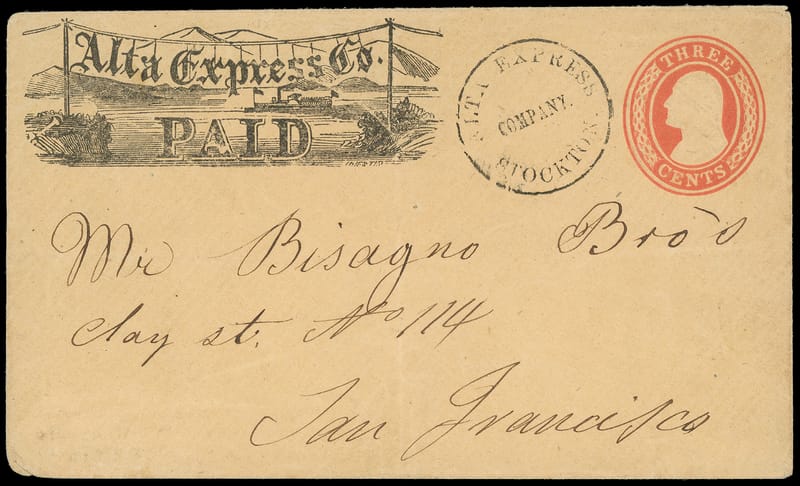 Alta Express Co.
PAID
ALTA EXPRESS
COMPANY.
STOCKTON.
THREE
CENTS
Mr Bisagno Bro's
Clay st. No 114
San Francisco